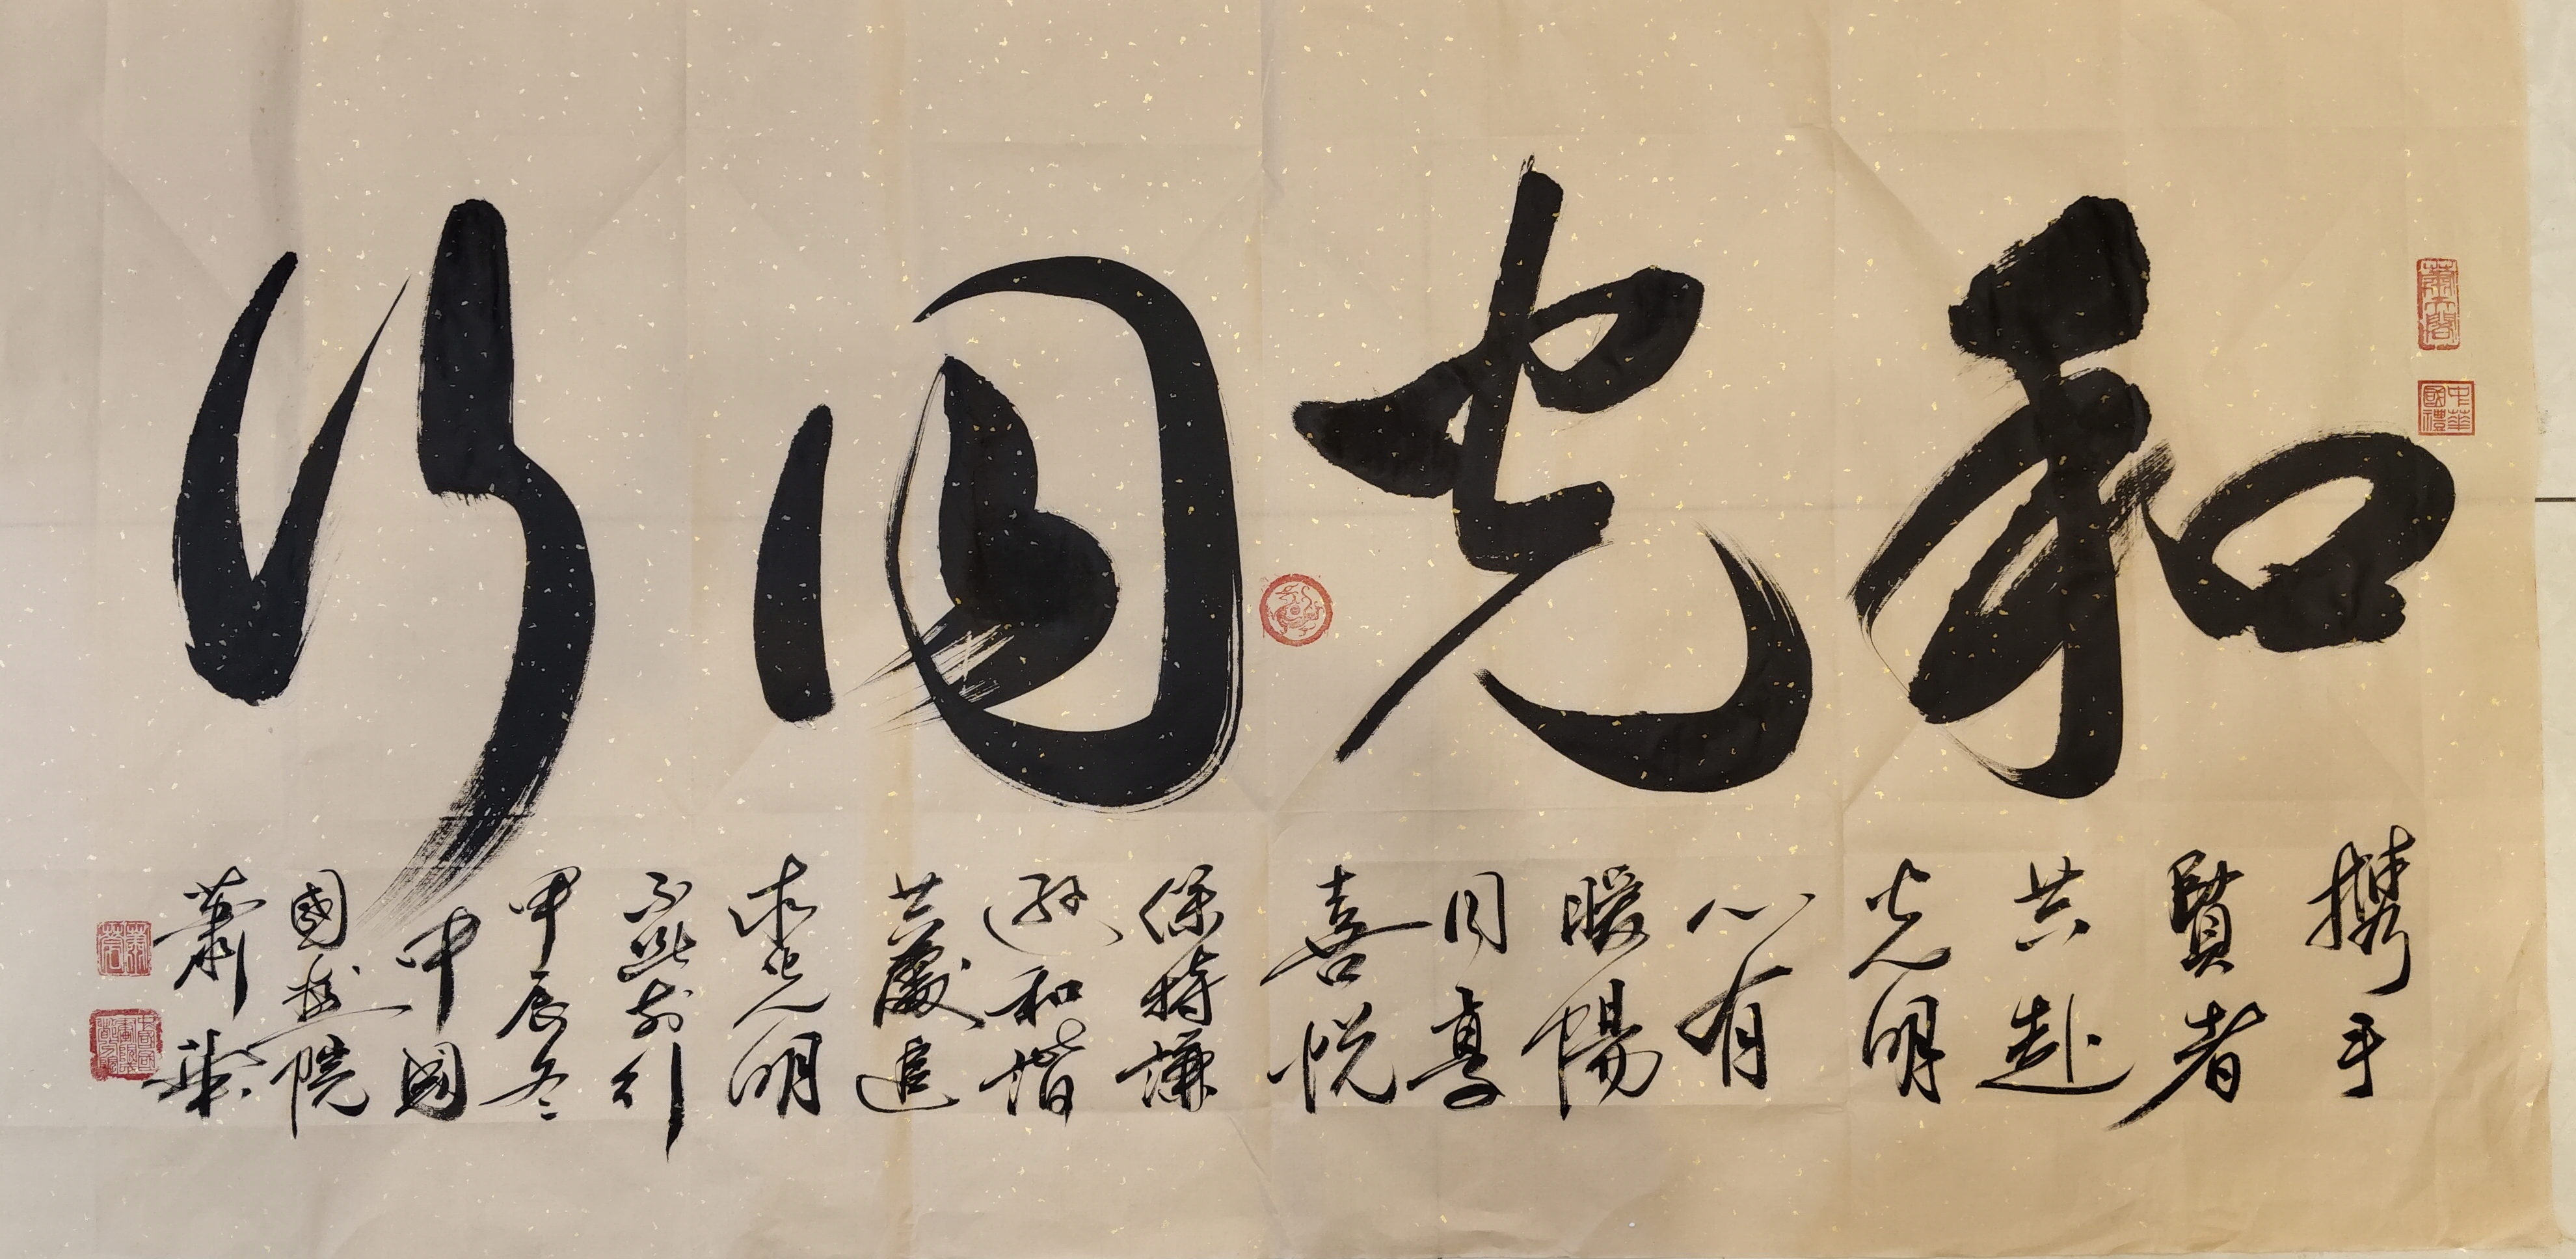 和光同行
携手
賢者
共赴
光明
心有
暖陽
同享
喜悦
保持謙
遜和諧
共處追
求光明
前行
甲辰冬
中國
國禮院
蕭華
中華國禮